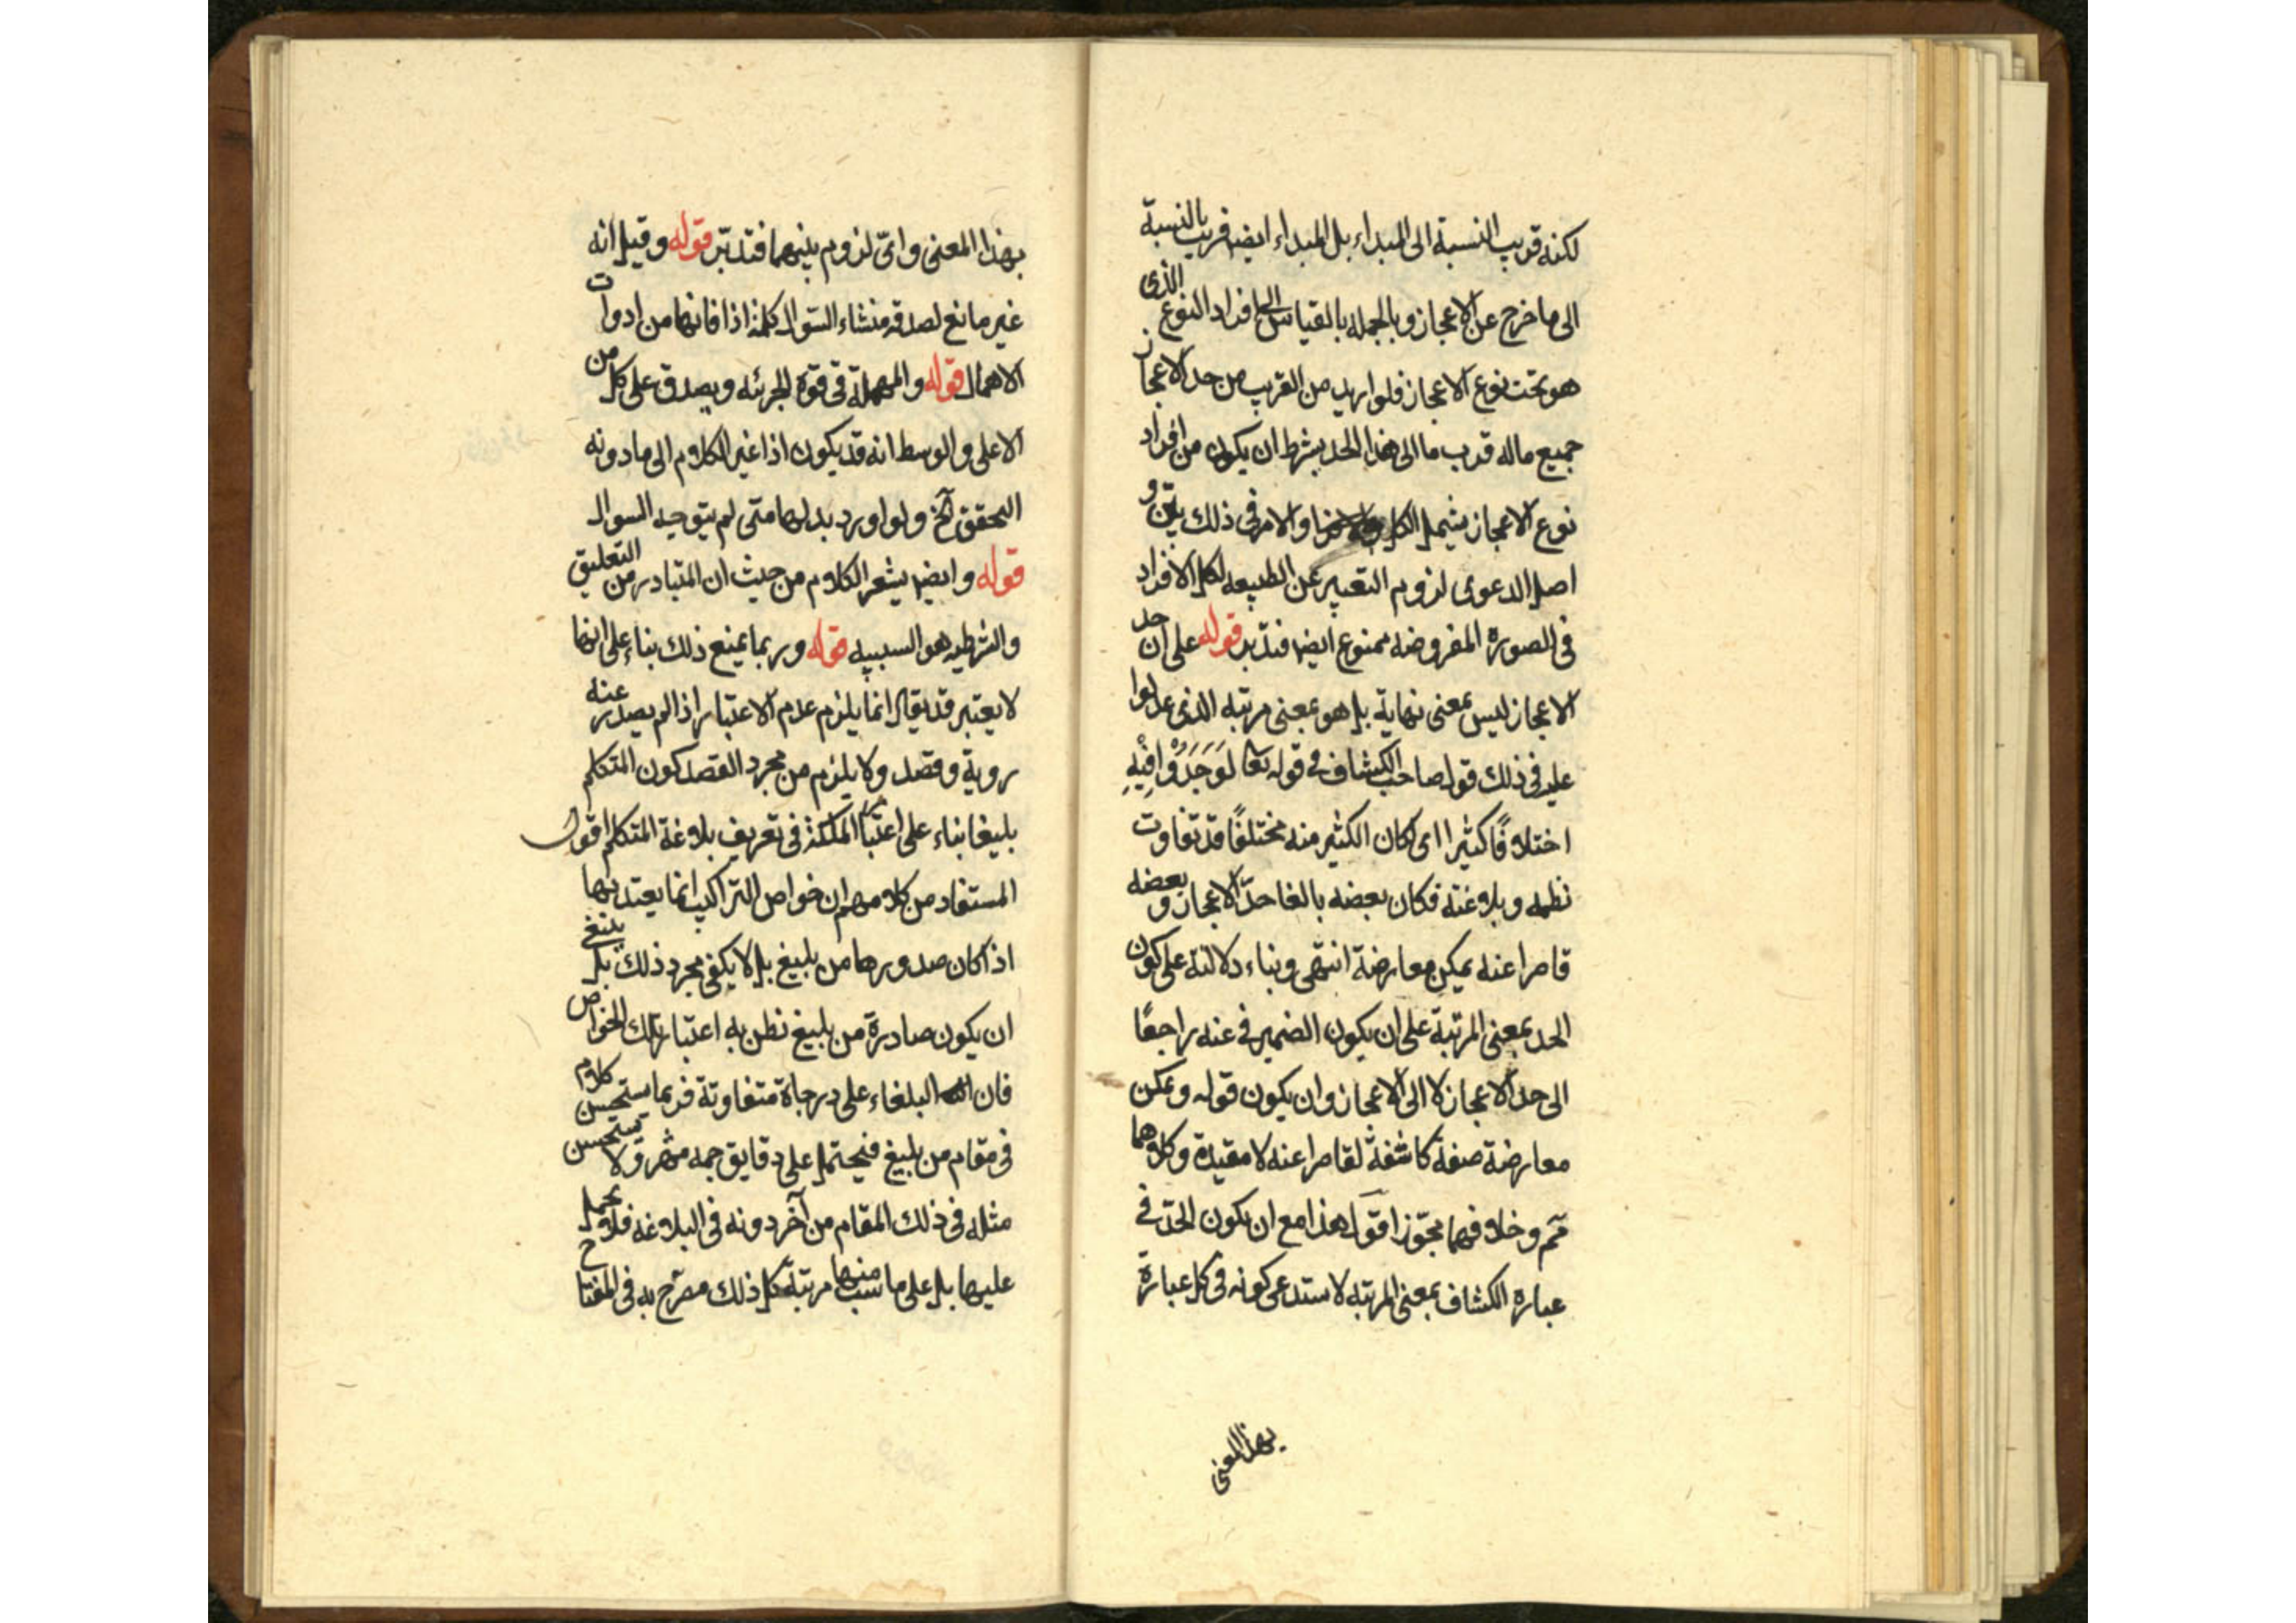 لكنه قريب النسبة الى المبداء بل المبداء ايضا قريب بالنسبة
الى ما خرج عن الاعجاز وبالجمله بالقياس الى افراد النوع الذى
هو تحت نوع الاعجاز فلو اريد من القريب من حد الاعجاز
جميع ماله قرب ما الى هذا الحد بشرط ان يكون من افراد
نوع الاعجاز يشمل الكل والامر فى ذلك بيّن و
اصل الدعوى لزوم التعبير عن الطبيعه لكل الافراد
فى الصورة المفروضه ممنوع ايضا فتدبر قوله على ان حد
الاعجاز ليس بمعنى نهاية بل هو بمعنى مرتبه الذى عدلوا
عليه فى ذلك قول صاحب الكشاف فى قوله تعا لَوَجَدُوْا فِيْهِ
اختلافًا كثيرا اى لكان الكثير منه مختلفًا قد تفاوت
نظمه وبلاغته فكان بعضه بالغا حدّ الاعجاز وبعضه
قاصرا عنه يمكن معارضة انتهى وبناء دلالته على كون
الحد بمعنى المرتبة على ان يكون الضمير فى عنه راجعًا
الى حد الاعجاز لا الى الاعجاز وان يكون قوله ويمكن
معارضة صفة كاشفة لقاصرا عنه لا مقيدة وكلاهما
مم وخلافهما مجوّز اقول هذا مع ان يكون الحدّ فى
عبارة الكشاف بمعنى المرتبه لا يستدعى كونه فى كل عبارة
بهذا المعنى
بهذا المعنى واىّ لزوم بينهما فتدبّر قوله وقيل انه
غير مانع لصدقه منشاء السّوال كلمة اذا فانها من ادوات
الاهمال قوله والمهملة فى قوّة الجزئه ويصدق على كل من
الاعلى والوسط انه قد يكون اذا غير الكلام الى ما دونه
التحقق آلخ ولو اورد بدلها متى لم يتوجه السوال
قوله وايضا يشعر الكلام من حيث ان المتبادر من التعليق
والشرطيه هو السببيه قوله وربما يمنع ذلك بناء على انها
لا يعتبر قد يقال انما يلزم عدم الاعتبار اذا لم يصدر عنه
روية وقصد ولا يلزم من مجرد القصد كون المتكلم
بليغا بناء على اعتبار الملكة فى تعريف بلاغة المتكلم اقول
المستفاد من كلامهم ان خواص التراكيب انما يعتد بها
اذا كان صدورها من بليغ بل لا يكفى مجرد ذلك بل ينبغى
ان يكون صادرة من بليغ نظن به اعتبار تلك الخواص
فان البلغاء على درجاة متفاوتة فربما يستحسن كلام
فى مقام من بليغ فيحتمل على دقايق جمه ولا يستحسن
مثله فى ذلك المقام من آخر دونه فى البلاغه فلا يحمل
عليها بل على ما يناسب منها مرتبة كل ذلك مصرّح به فى المفتاح